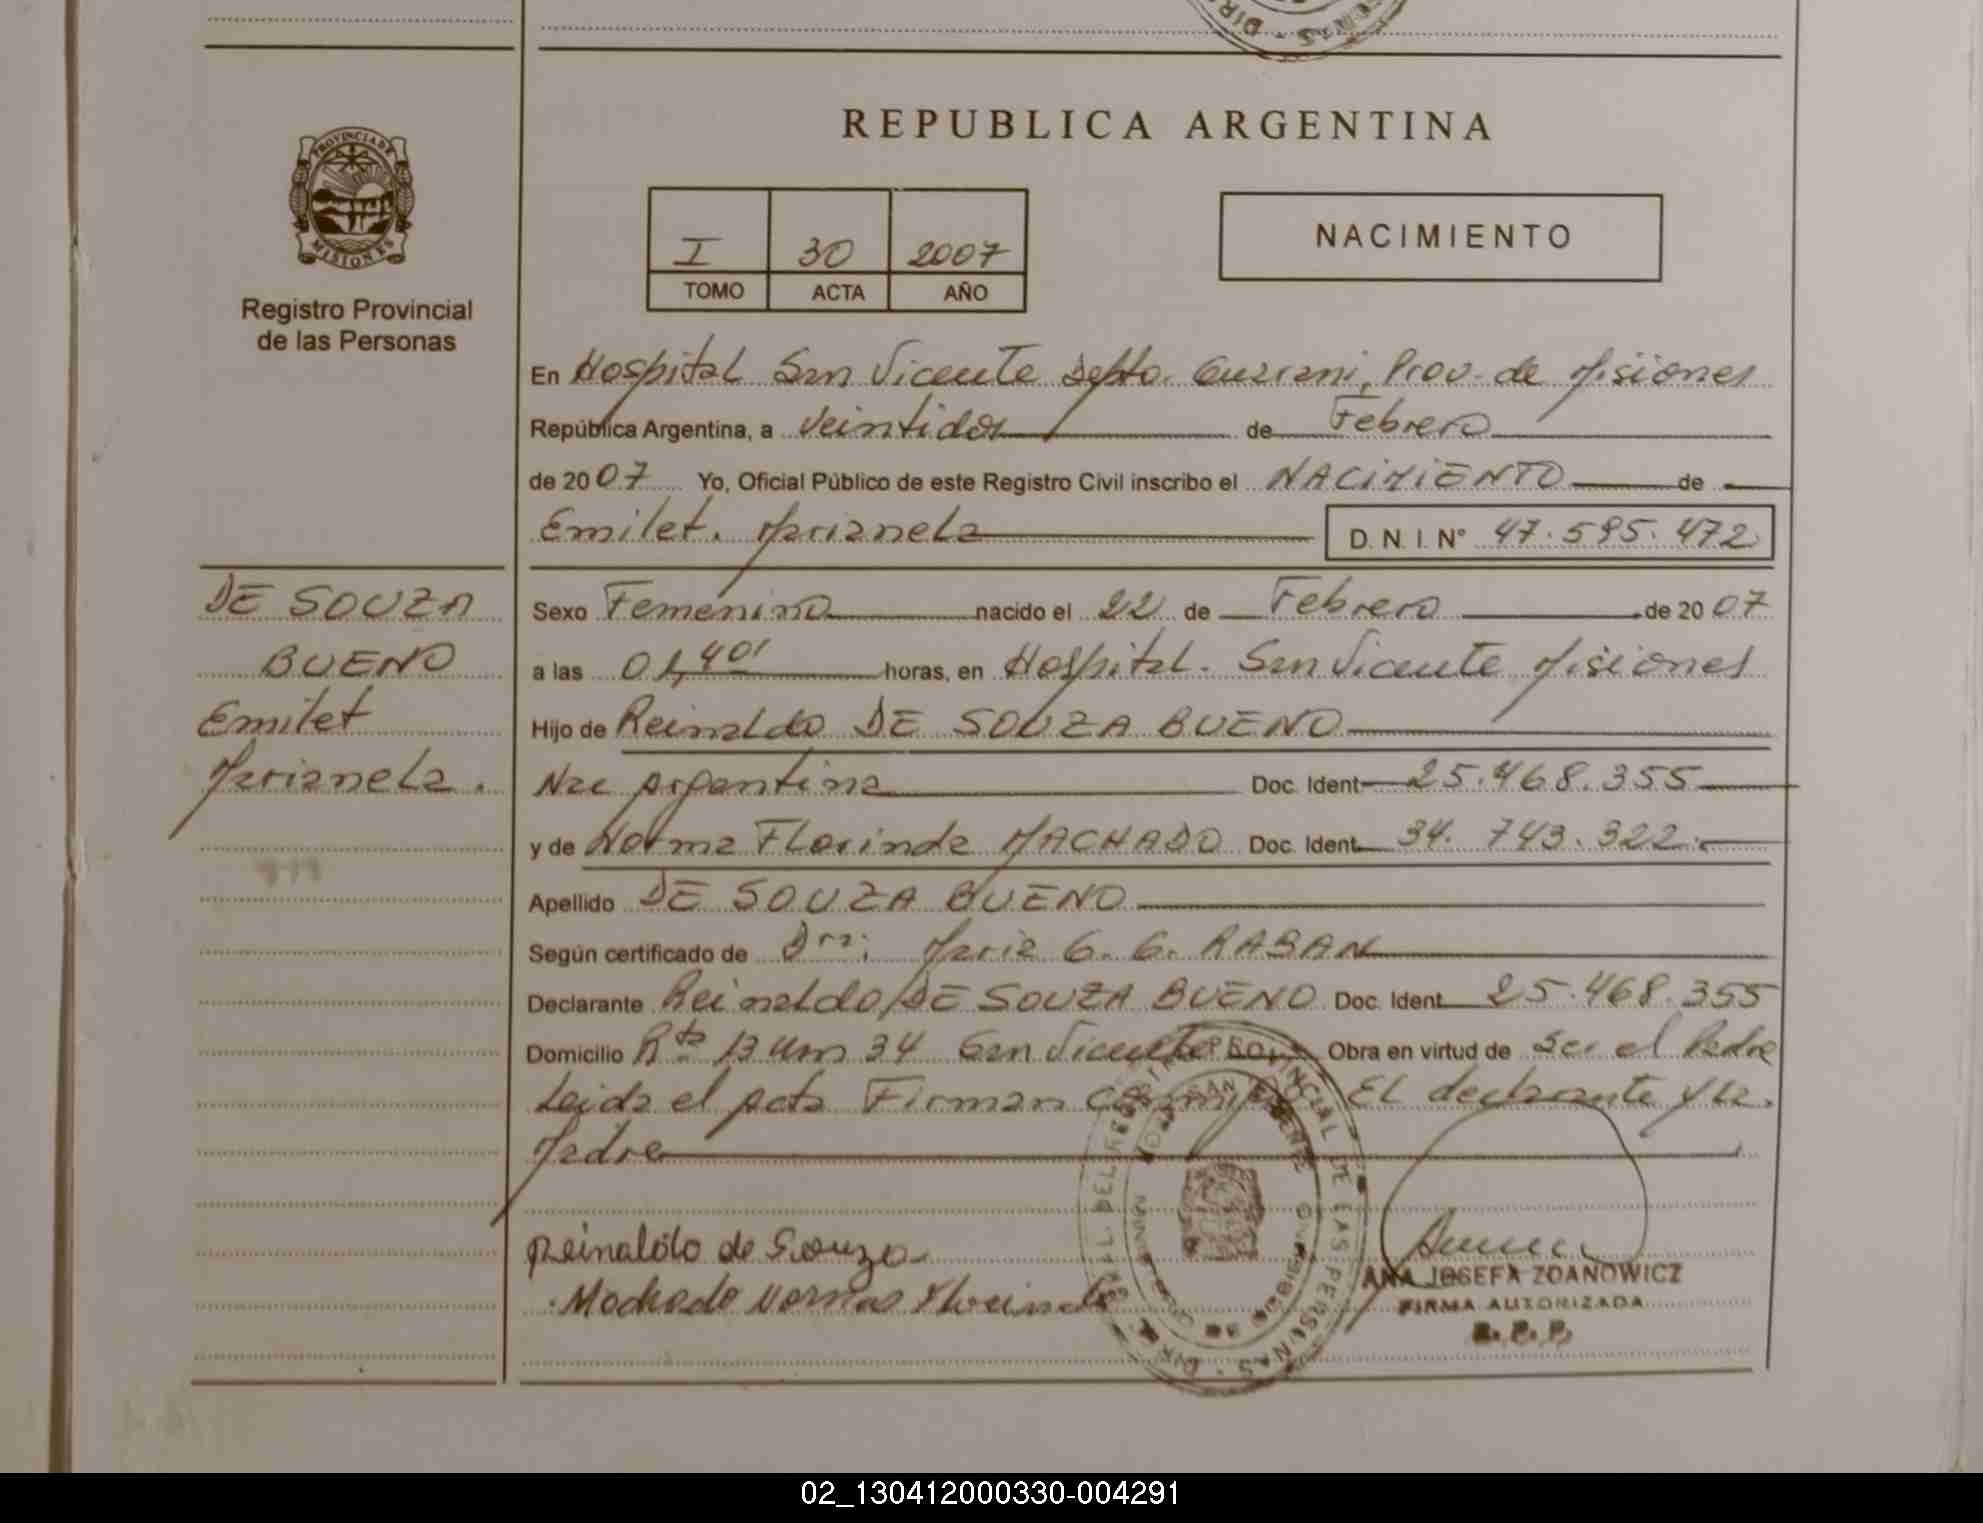 REPUBLICA ARGENTINA
PROVINCIA DE MISIONES
Registro Provincial
de las Personas
I 30 2007
TOMO ACTA AÑO
NACIMIENTO
En Hospital San Vicente Depto. Guarani, Prov. de Misiones
República Argentina, a veintidos de Febrero
de 2007 Yo, Oficial Público de este Registro Civil inscribo el NACIMIENTO de
Emilet. Marianela D. N. I. N° 47.595.472
DE SOUZA
BUENO
Emilet
Marianela.
Sexo Femenino nacido el 22 de Febrero de 2007
a las 01,40' horas, en Hospital. San Vicente Misiones
Hijo de Reinaldo DE SOUZA BUENO
Nac Argentina Doc. Ident 25.468.355
y de Norma Florinda MACHADO Doc. Ident. 34.743.322.
Apellido DE SOUZA BUENO
Según certificado de Dra: Maria G. G. RABAN
Declarante Reinaldo DE SOUZA BUENO Doc. Ident 25.468.355
Domicilio Rta 13 Km 34 San Vicente Obra en virtud de Ser el Padre
Leida el acta Firman conmigo El declarante y la.
Madre
Reinaldo de Souza
Machado Normas
ANA JOSEFA ZOANOWICZ
FIRMA AUTORIZADA
DEL REGISTRO PROVINCIAL DE LAS PERSONAS
02_130412000330-004291